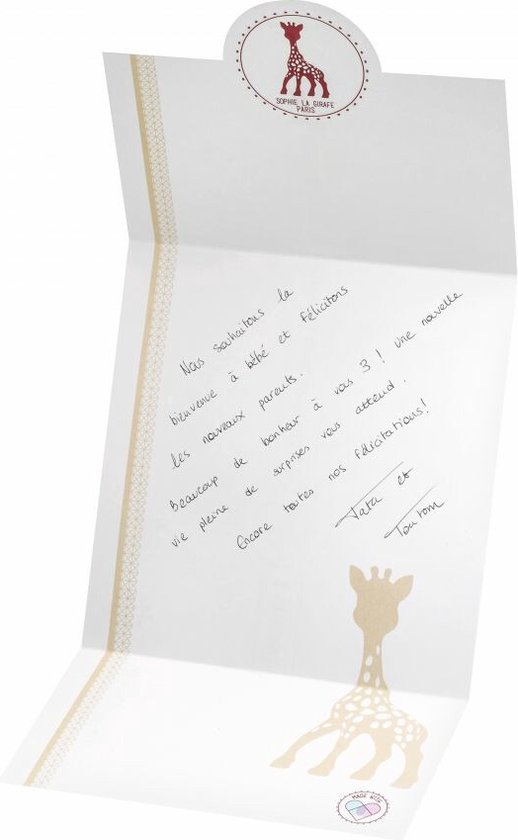 SOPHIE LA GIRAFE
PARIS
Nous souhaitons la
bienvenue à bébé et félicitons
les nouveaux parents.
Beaucoup de bonheur à vous 3 ! Une nouvelle
vie pleine de surprises vous attend.
Encore toutes nos félicitations!
Tata et
Tonton
MADE WITH